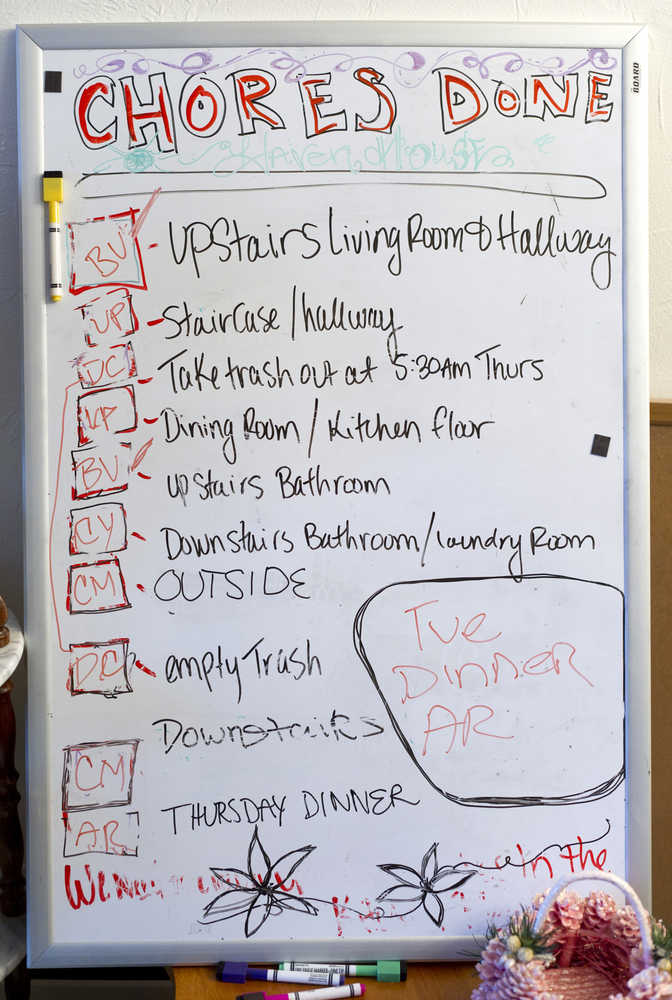 CHORES DONE
BOARD
Haven House
BV - Upstairs Living Room & Hallway
UP - Staircase / hallway
DC - Take trash out at 5:30AM Thurs
UP - Dining Room / Kitchen floor
BV - upstairs Bathroom
CY - Downstairs Bathroom / Laundry Room
CM - OUTSIDE
DC - empty Trash
Downstairs
CM
AR THURSDAY DINNER
TUE
DINNER
AR
In the